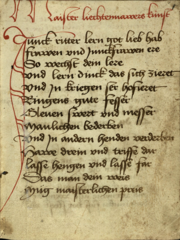 Maister liechtenawers kunst
Junck ritter lern got lieb hab
frawen und junckfrawen ere
So wechst dein ere
und lern dinck das dich zieret
Und in kriegen ser hofieret
Ringens gute fesser
Gleven swert und messer
Manlichen bederben
Und in andern henden verderben
Haw drein und triffe dar
Lasse hengen und lasse far
Das man dein weis
mug maisterlichen preis